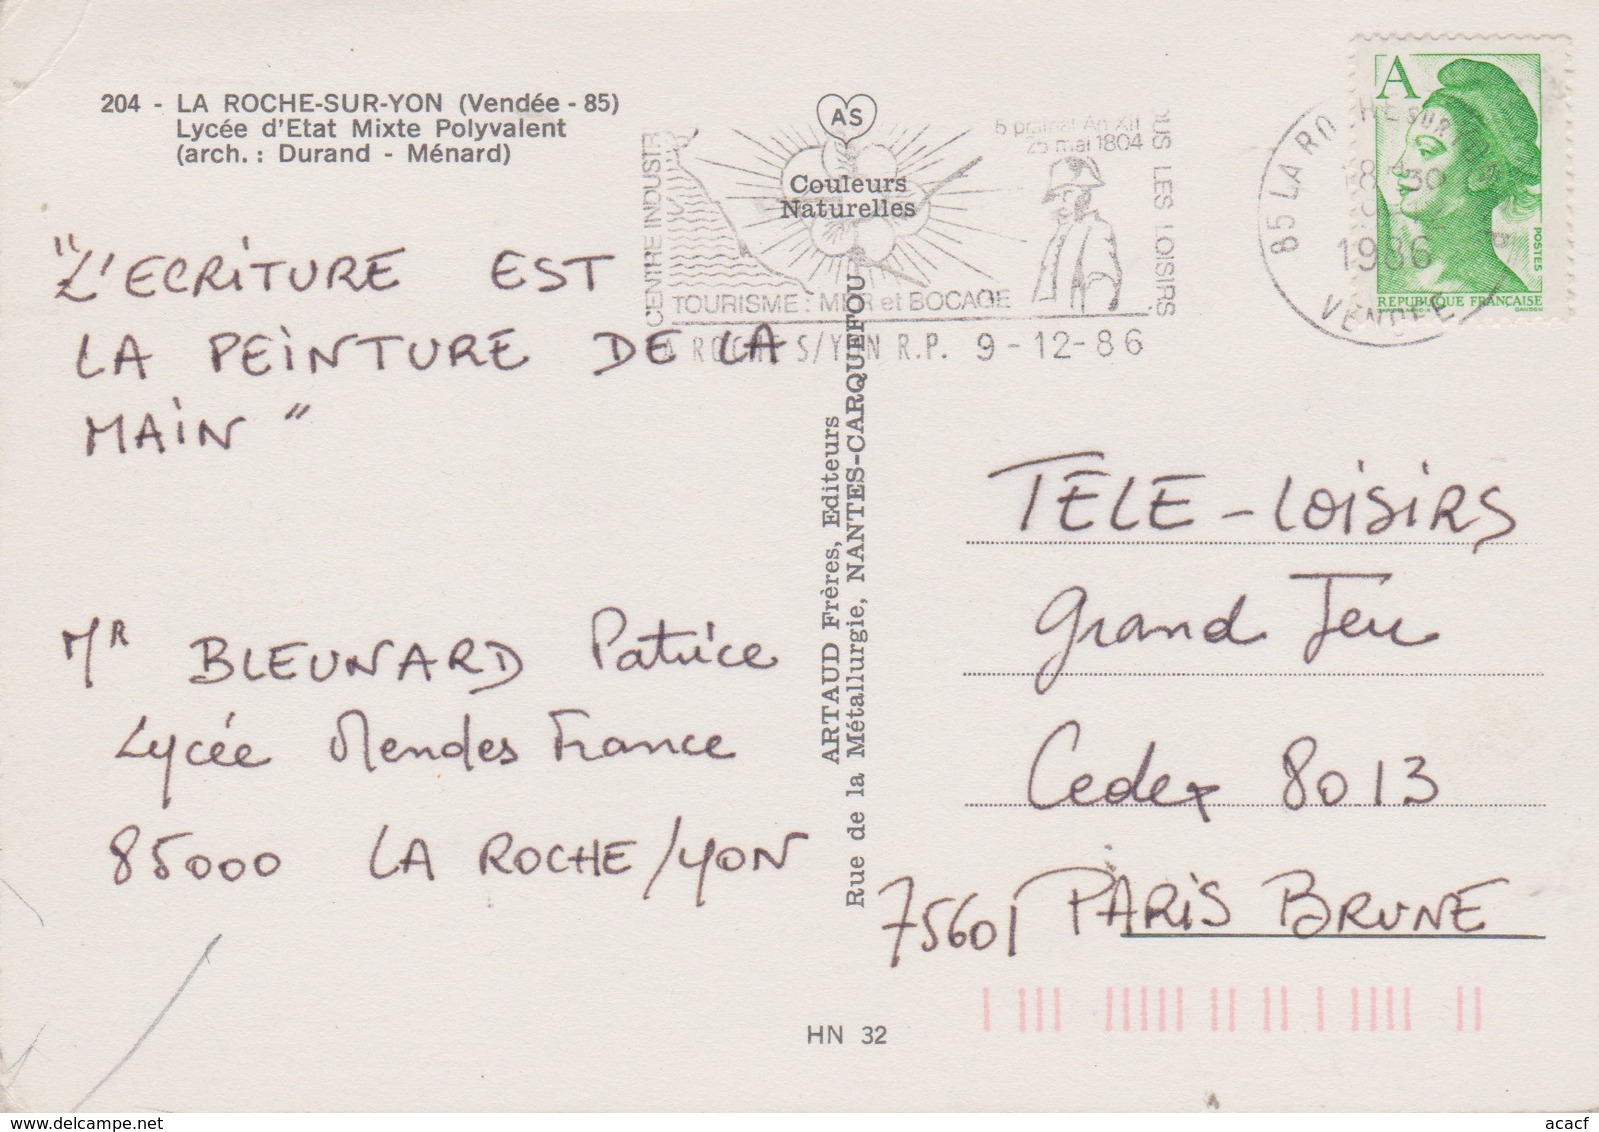 204 - LA ROCHE-SUR-YON (Vendée - 85)
Lycée d'Etat Mixte Polyvalent
(arch. : Durand - Ménard)
"L'ECRITURE EST
LA PEINTURE DE LA
MAIN"
Mr BLEUNARD Patrice
Lycée Mendes France
85000 LA ROCHE/YON
AS
Couleurs
Naturelles
CENTRE INDUSTR
5 prairial An XII
25 mai 1804
US LES LOISIRS
TOURISME : MER et BOCAGE
ROCHE S/YON R.P. 9-12-86
ARTAUD Frères, Editeurs
Rue de la Métallurgie, NANTES-CARQUEFOU
HN 32
A
POSTES
REPUBLIQUE FRANÇAISE
GANDON
85 LA ROCHE SUR YON
1986
VENDEE
TELE-LOISIRS
Grand Jeu
Cedex 8013
75601 PARIS BRUNE
acacf